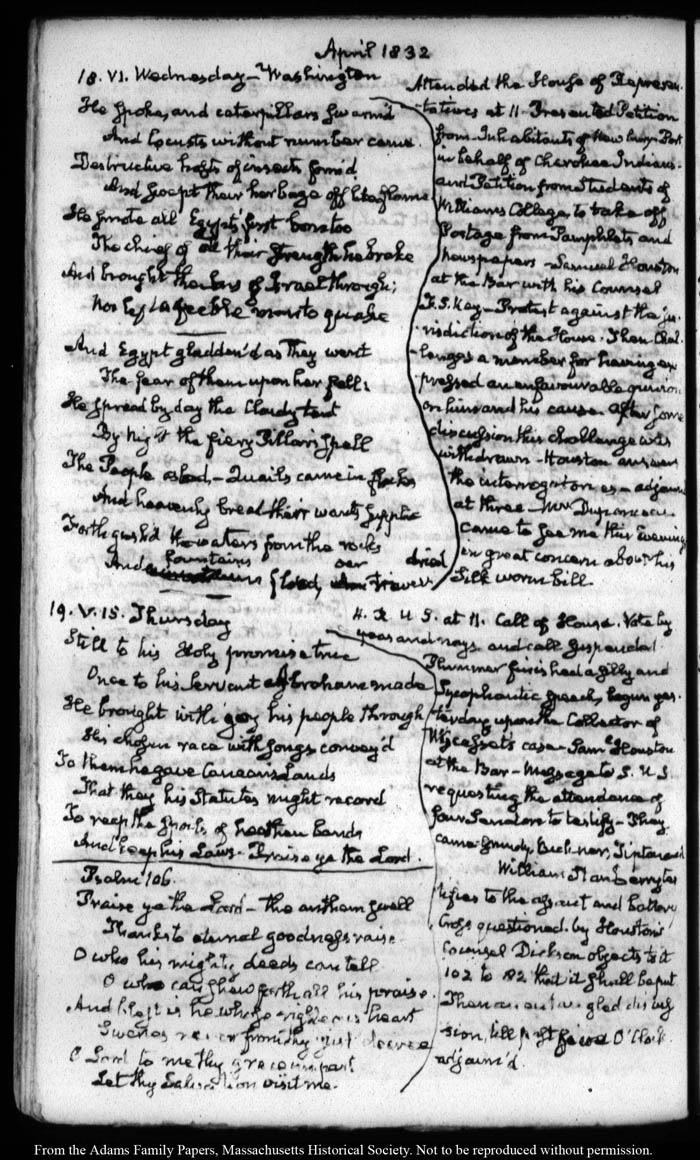 April 1832
18. VI. Wednesday - Washington
He spoke, and caterpillars swarm'd
And locusts without number came.
Destructive hosts of insects form'd
And swept their herbage off like flame
He smote all Egypt's first born too
The chief of all their strength he broke
And brought the of Israel through;
Nor left a feeble to quake
And Egypt gladden'd as they went
The fear of them upon her fell:
He spread by day the Cloudy tent
By night the fiery Pillar's spell
The People asked, - Quails came in flocks
And heavenly bread their wants supplied
Forth gush'd the waters from the rocks
fountains oer dried
And flow'd, rivers
Attended the House of Represen-
tatives at 11. Presented Petition
from Inhabitants of Newbury Port
in behalf of Cherokee Indians-
and Petition from Students of
Williams College, to take off
Postage from Pamphlets and
newspapers - Samuel Houston
at the Bar with his Counsel
F. S. Key - Protest against the ju-
risdiction of the House. Then Chal-
lenges a member for having ex
pressed an unfavourable opinion
on him and his cause. After some
discussion this challenge was
withdrawn - Houston answers
the interrogatories - adjourn
at three - Mr Duponceau
came to see me this Evening
in great concern about his
Silk worm bill.
19. V. 15. Thursday
Still to his Holy promise true
Once to his Servant Abraham made
He brought with joy his people through
His chosen race with songs convey'd
To them he gave Canaan's Lands
That they his Statutes might record
To reap the spoils of heathen bands
And keep his Laws - Praise ye the Lord.
Psalm 106.
Praise ye the Lord - the anthem swell
Thanks to eternal goodness raise
O who his mighty deeds can tell
O who can shew forth all his praise.
And blest is he whose righteous heart
from thy just decree
O Lord to me thy grace impart
Let thy Salvation visit me.
H. R. U S. at 11. Call of House. Vote by
yeas and nays. and call suspended
Plummer finished a silly and
Sycophantic speech, begun yes-
terday upon the Collector of
Wiscasset's case - Saml Houston
at the Bar - Message to S. U S
requesting the attendance of
four Senators to testify - They
came Grundy, Buckner, Tipton and
William Stanberry tes
tifies to the assault and battery
Cross questioned by Houston's
Counsel Dickson objects to it
102 to 82 that it shall be put
Then discus
sion, till past five O'Clock
adjourn'd.
From the Adams Family Papers, Massachusetts Historical Society. Not to be reproduced without permission.